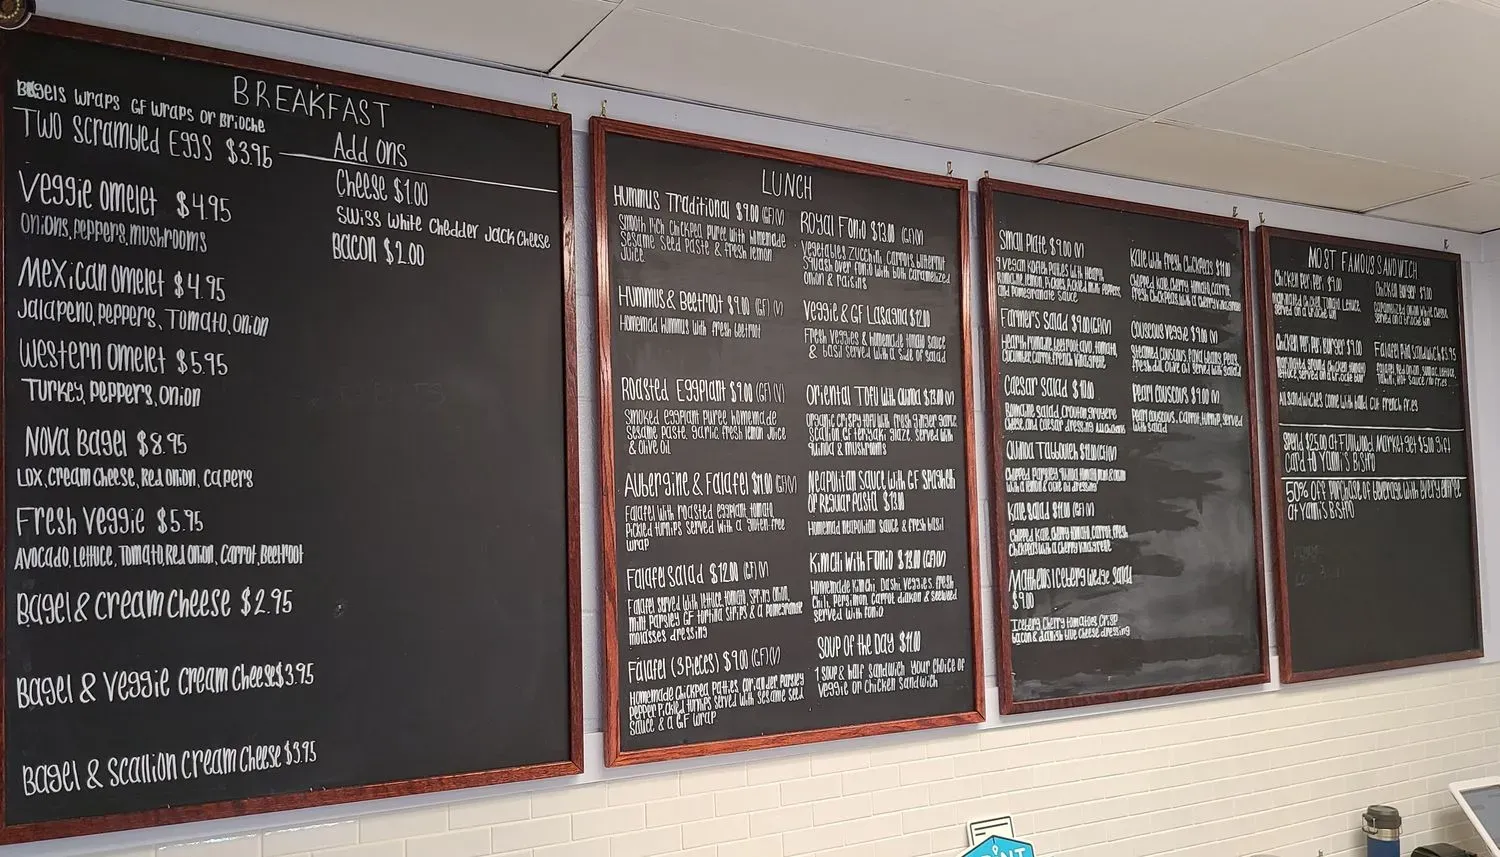 BREAKFAST
Bagels Wraps GF Wraps or Brioche
Two Scrambled Eggs $3.95
Veggie omelet $4.95
Onions, peppers, mushrooms
Mexican omelet $4.95
Jalapeno, peppers, Tomato, onion
Western omelet $5.95
Turkey, peppers, onion
Nova Bagel $8.95
Lox, cream cheese, Red onion, capers
Fresh veggie $5.95
Avocado, Lettuce, Tomato, Red onion, Carrot, Beetroot
Bagel & cream cheese $2.95
Bagel & Veggie cream cheese $3.95
Bagel & scallion cream cheese $3.95
Add ons
Cheese $1.00
Swiss White Chedder Jack cheese
Bacon $2.00
LUNCH
Hummus Traditional $9.00 (GF)(V)
Smooth rich chickpea puree with homemade
Sesame seed paste & fresh lemon
juice
Hummus & Beetroot $9.00 (GF)(V)
Homemad hummus with fresh beetroot
Roasted Eggplant $9.00 (GF)(V)
Smoked eggplant puree homemade
sesame paste, garlic, fresh lemon juice
& olive oil
Aubergine & Falafel $11.00 (GF)(V)
Falafel with roasted eggplant tomato,
Pickled turnips served with a gluten free
wrap
Falafel Salad $12.00 (GF)(V)
Falafel served with lettuce, tomato, spring onion,
mint parsley GF tortilla strips & a pomegranate
molasses dressing
Falafel (3 Pieces) $9.00 (GF)(V)
Homemade chickpea patties, coriander, parsley
pepper pickled turnips served with sesame seed
sauce & a GF wrap
Royal Fonio $13.00 (GF)(V)
Vegetables zucchini, carrots, butternut
squash over fonio with both caramelized
onion & raisins
Veggie & GF Lasagna $12.00
Fresh veggies & homemade tomato sauce
& basil served with a side of salad
Oriental Tofu with Quinoa $13.00 (V)
Organic crispy tofu with fresh ginger garlic
scallion GF teriyaki glaze, served with
quinoa & mushrooms
Neapolitan Sauce with GF Spaghetti
or Regular pasta $13.00
Homemade neapolitan sauce & fresh basil
Kimchi with Fonio $13.00 (GF)(V)
Homemade kimchi, Dashi veggies, fresh
chili, persimon, carrot daikon & seaweed
served with fonio
Soup of the Day $11.00
1 soup & half sandwich your choice of
veggie or chicken sandwich
Small Plate $9.00 (V)
9 vegan kofteh patties with hearty
Romaine, lemon, pickles, pickled mint peppers,
and pomegranate sauce
Farmer's Salad $9.00 (GF)(V)
Hearty romaine, beetroot, avo, tomato,
cucumber, carrot, french vinaigrette
Caesar Salad $10.00
Romaine salad, crouton gruyere
cheese, and caesar dressing
Quinoa Tabbouleh $12.00 (GF)(V)
Chopped parsley quinoa tomato mint & onion
with a lemon & olive oil dressing
Kale Salad $11.00 (GF)(V)
Chopped kale, cherry tomato, carrot, fresh
chickpeas with a cherry vinaigrette
Matthews Iceberg Wedge Salad
$9.00
Iceberg, cherry tomatoes, crisp
bacon & danish blue cheese dressing
Kale with fresh chickpeas $11.00
Chopped kale, cherry tomato, carrot,
fresh chickpeas with a cherry vinaigrette
Couscous veggie $9.00 (V)
Steamed couscous, fava beans, peas,
fresh dill, olive oil served with salad
Pearl couscous $9.00 (V)
Pearl couscous, carrot, turnip, served
with salad
MOST FAMOUS SANDWICH
Chicken Peri Peri $9.00
Marinated chicken, Tomato, Lettuce,
served on a brioche bun
Chicken Peri Peri Burger $9.00
Marinated ground chicken tomato
lettuce, served on a brioche bun
Chicken Burger $9.00
Caramelized onion, white cheddar,
served on a brioche bun
Falafel Pita Sandwich $5.95
Falafel, red onion, sumac, lettuce,
tahini, hot sauce / no fries
All sandwiches come with hand cut french fries
Spend $25.00 at Fullwood Market get $5.00 gift
card to Yammi's Bistro
50% off purchase of beverage with every entree
at Yammi's Bistro